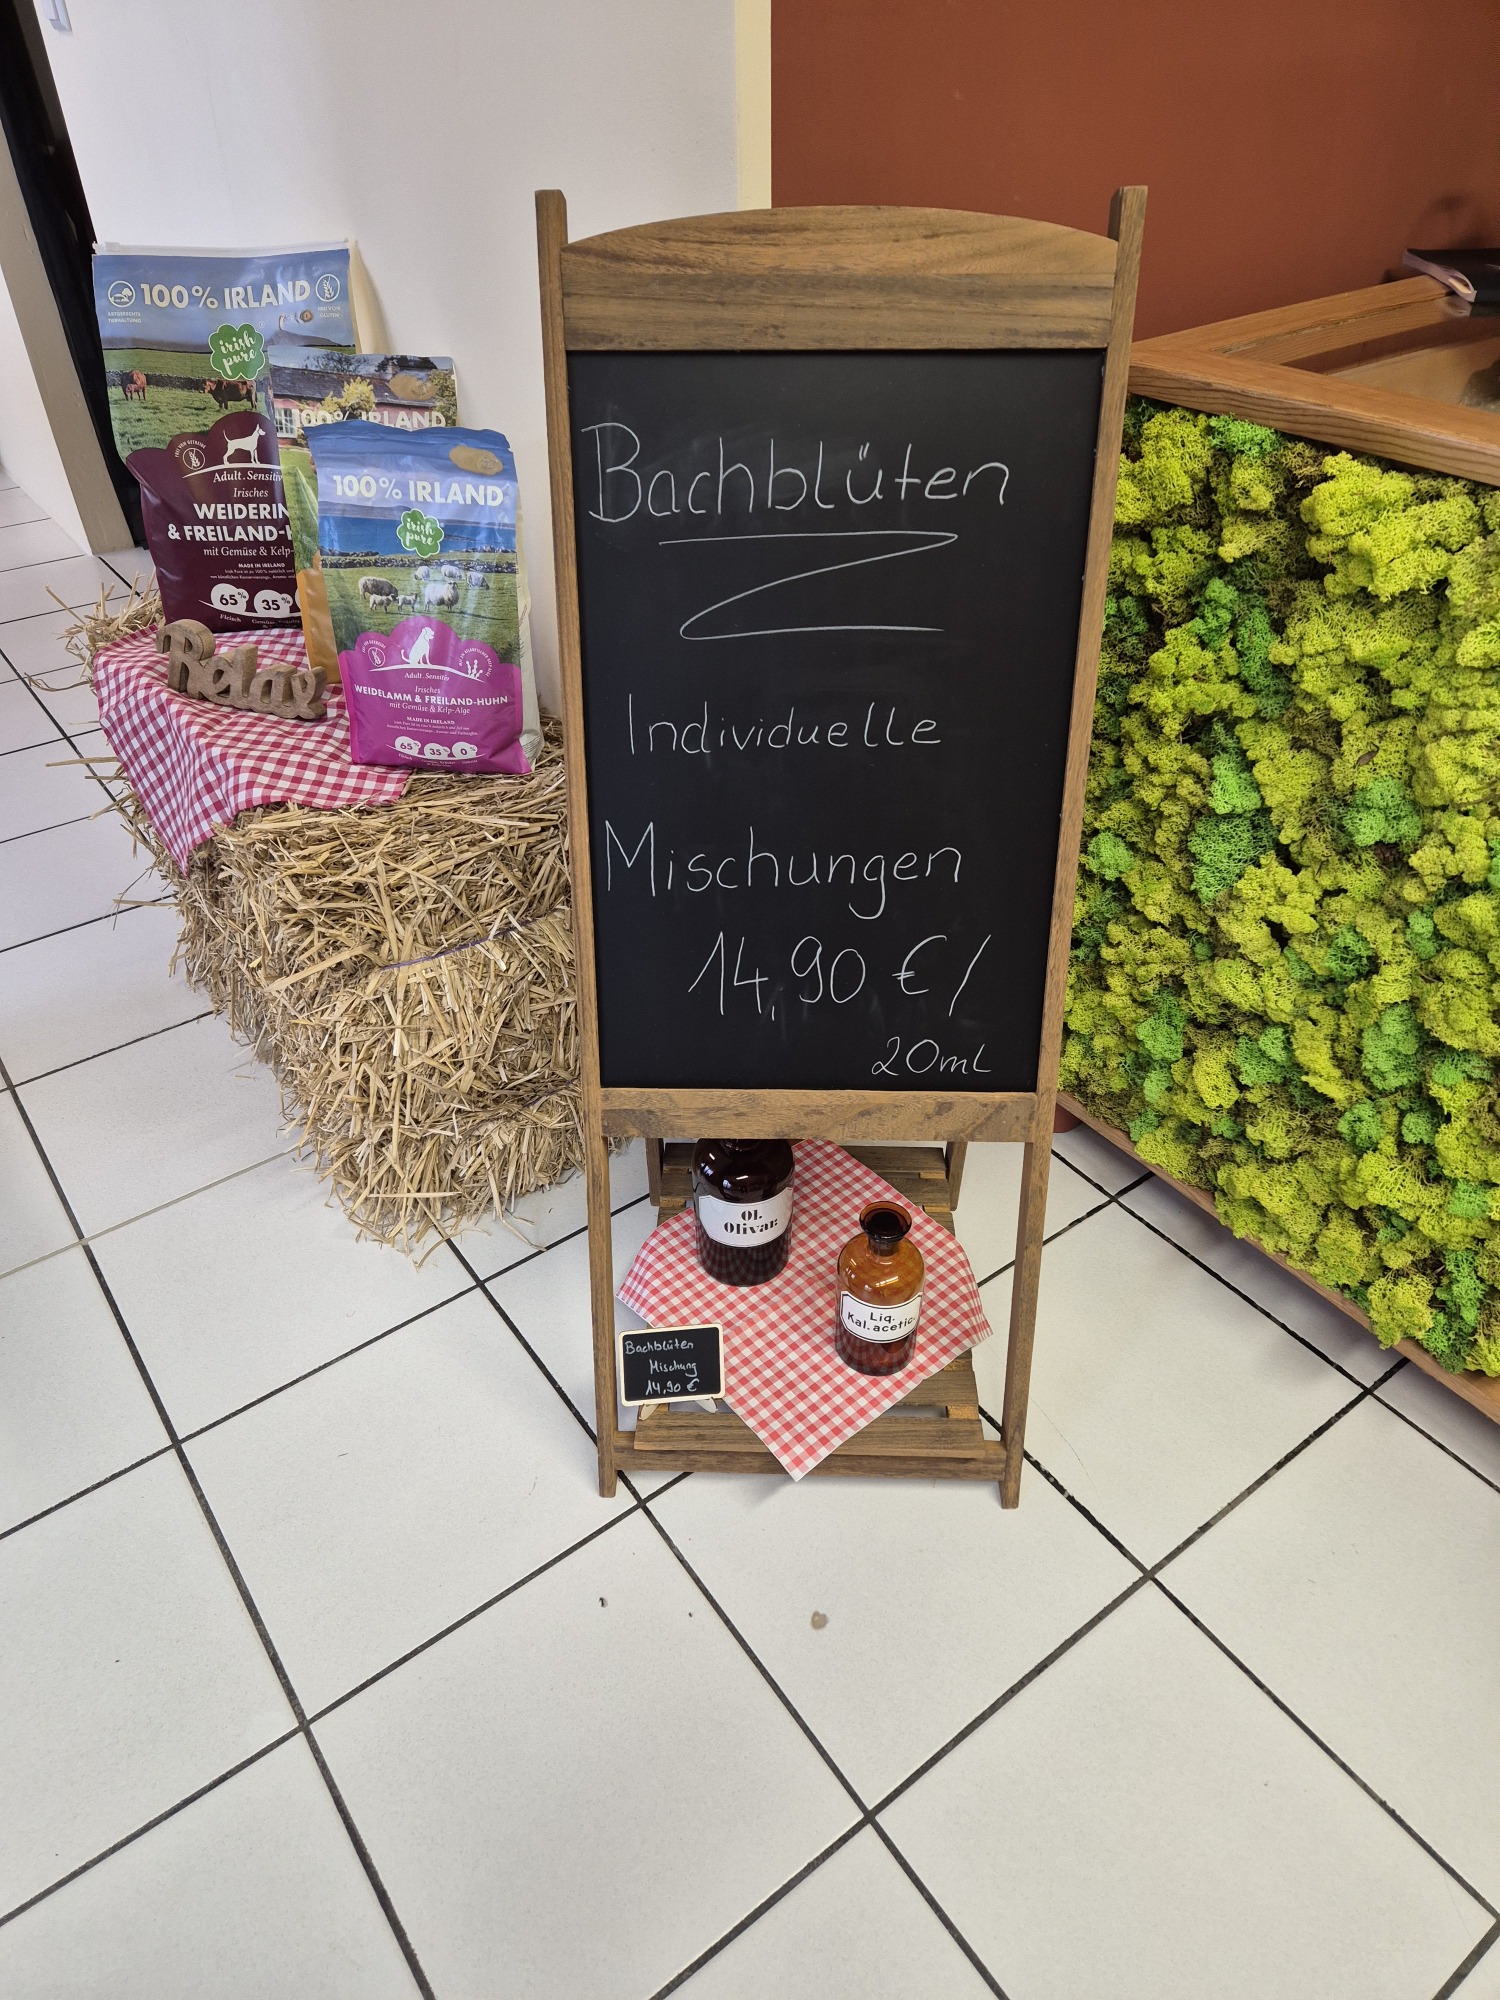 100% IRLAND
ARTGERECHTE
TIERHALTUNG
FREI VON
GLUTEN
irish
pure
Adult.Sensitiv
Irisches
WEIDERIN
& FREILAND-H
mit Gemüse & Kelp-
MADE IN IRELAND
65%
35%
Fleisch
100% IRLAND
100% IRLAND
irish
pure
Adult.Sensitiv
Irisches
WEIDELAMM & FREILAND-HUHN
mit Gemüse & Kelp-Alge
MADE IN IRELAND
65%
35%
0%
Relax
Bachblüten
Individuelle
Mischungen
14,90 € /
20mL
Ol.
Olivar.
Liq.
Kal. acetic.
Bachblüten
Mischung
14,90 €